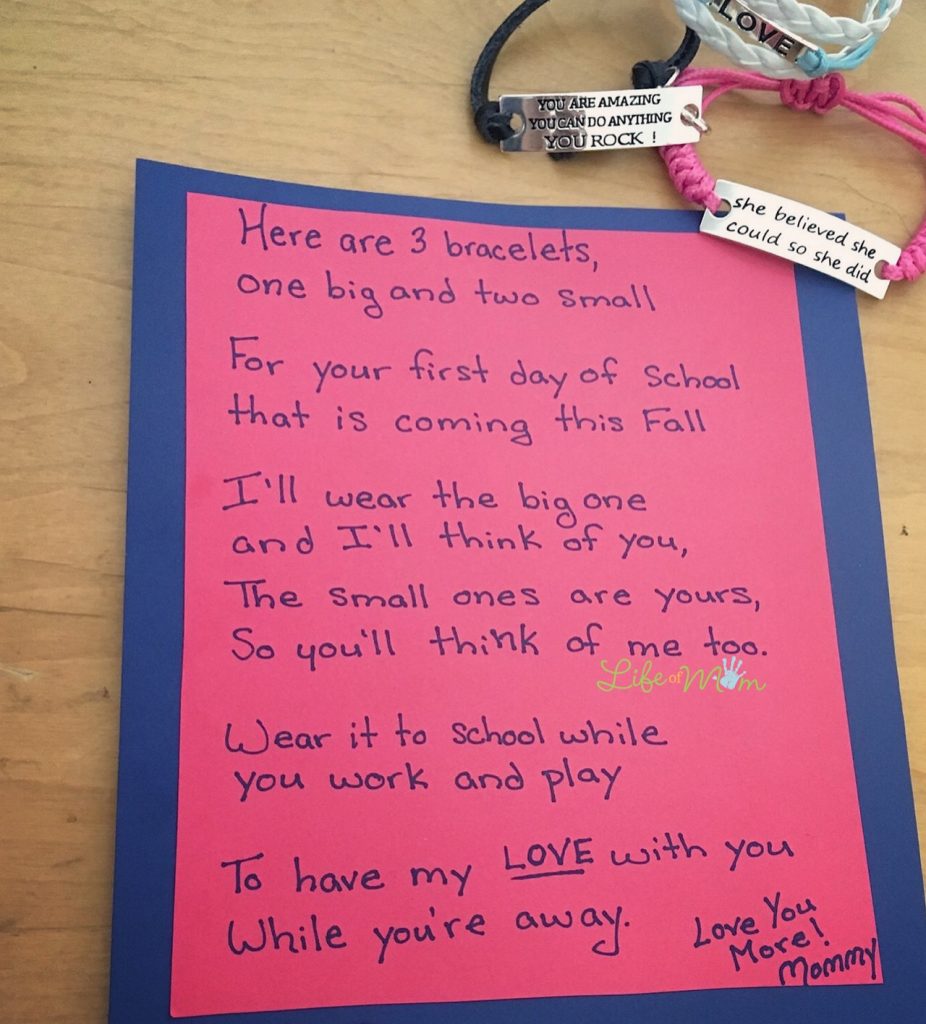 LOVE
YOU ARE AMAZING
YOU CAN DO ANYTHING
YOU ROCK !
she believed she
could so she did
Here are 3 bracelets,
one big and two small
For your first day of School
that is coming this Fall
I'll wear the big one
and I'll think of you,
The small ones are yours,
So you'll think of me too.
Life of Mom
Wear it to school while
you work and play
To have my LOVE with you
While you're away.
Love You
More!
Mommy